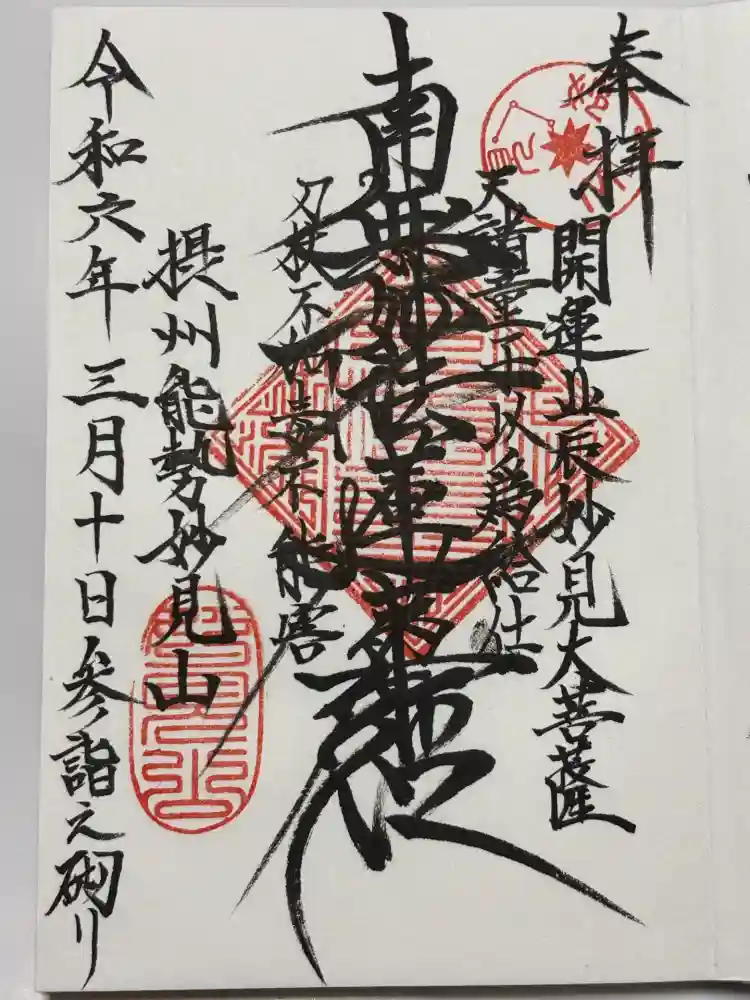 奉拝
開運北辰妙見大菩薩
天諸童子以為給仕
南無妙法蓮華経
刀杖不加毒不能害
摂州能勢妙見山
令和六年三月十日参詣之砌リ